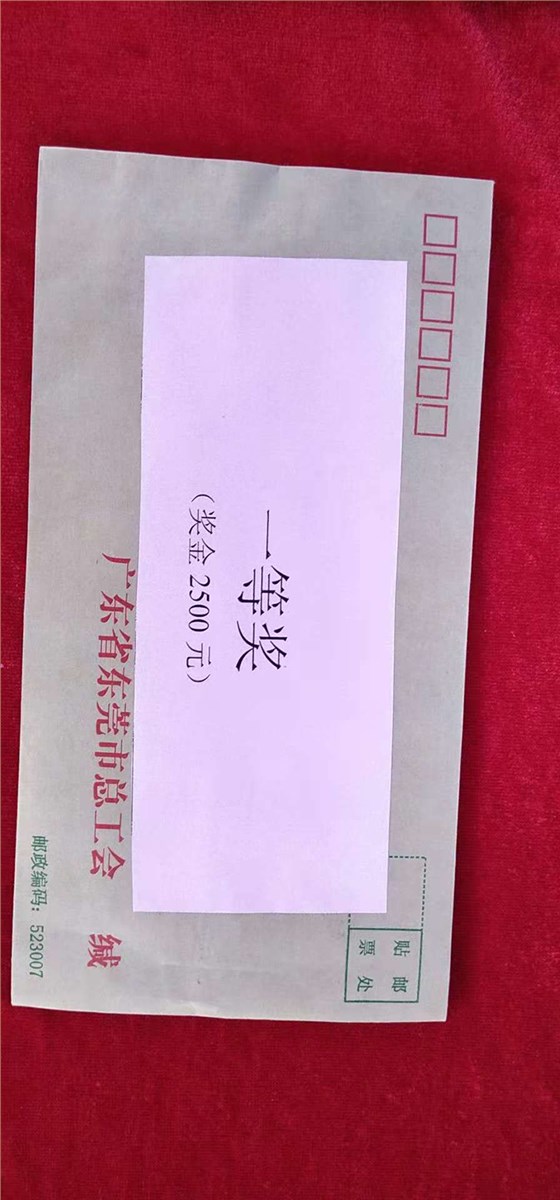 贴 邮
票 处
一等奖
（奖金 2500 元）
广东省东莞市总工会 缄
邮政编码：523007